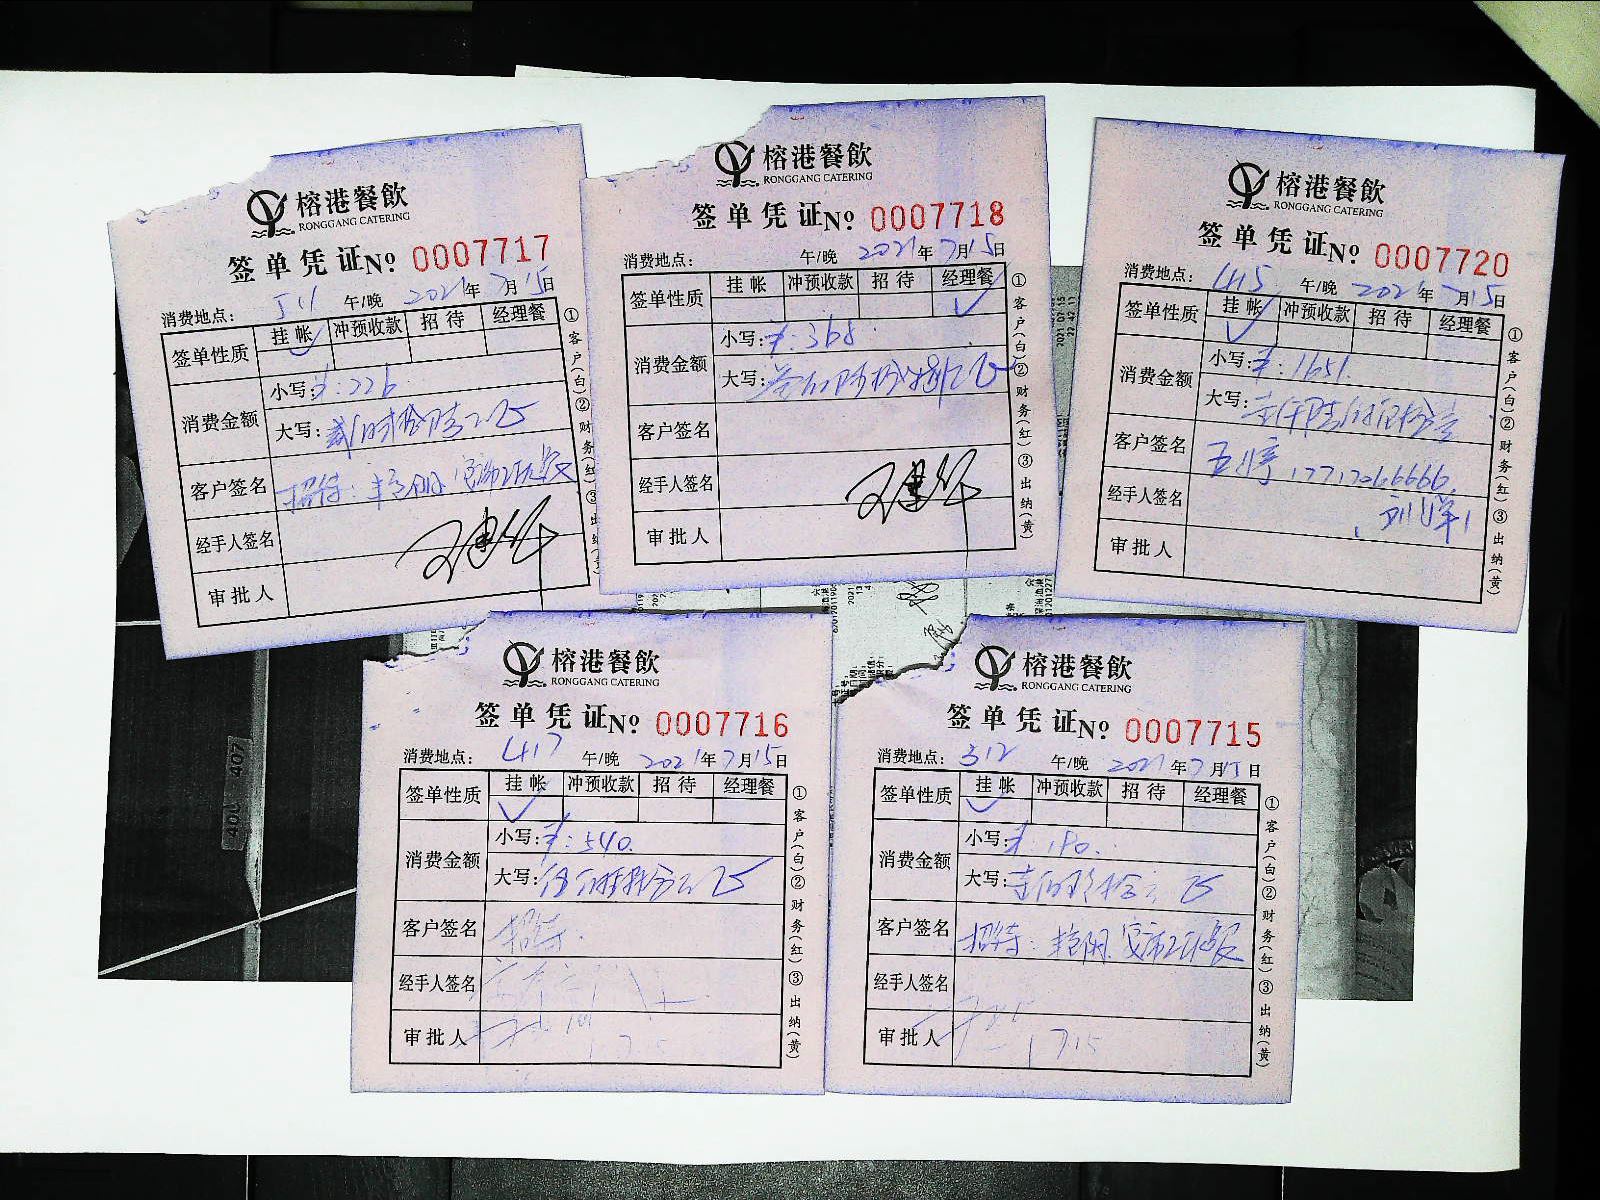 榕港餐飲
RONGGANG CATERING
签单凭证 No 0007717
消费地点: 午/晚 2021年7月15日
签单性质 挂帐 冲预收款 招待 经理餐
消费金额 小写: ¥:226.
大写: 贰佰贰拾陆元
客户签名 招待:
经手人签名
审批人
①客户(白)②财务(红)③出纳(黄)
榕港餐飲
RONGGANG CATERING
签单凭证 No 0007718
消费地点: 午/晚 2021年7月15日
签单性质 挂帐 冲预收款 招待 经理餐
消费金额 小写: ¥:368.
大写: 叁佰陆拾捌元
客户签名
经手人签名
审批人
①客户(白)②财务(红)③出纳(黄)
榕港餐飲
RONGGANG CATERING
签单凭证 No 0007720
消费地点: 415 午/晚 2021年7月15日
签单性质 挂帐 冲预收款 招待 经理餐
消费金额 小写: ¥:1651.
大写: 壹仟陆佰伍拾壹
客户签名 17712066666.
经手人签名
审批人
①客户(白)②财务(红)③出纳(黄)
榕港餐飲
RONGGANG CATERING
签单凭证 No 0007716
消费地点: 417 午/晚 2021年7月15日
签单性质 挂帐 冲预收款 招待 经理餐
消费金额 小写: ¥:540.
大写: 伍佰肆拾元
客户签名 招待.
经手人签名
审批人 7.15
①客户(白)②财务(红)③出纳(黄)
榕港餐飲
RONGGANG CATERING
签单凭证 No 0007715
消费地点: 312 午/晚 2021年7月15日
签单性质 挂帐 冲预收款 招待 经理餐
消费金额 小写: ¥:180.
大写: 壹佰捌拾元
客户签名 招待:
经手人签名
审批人 7.15
①客户(白)②财务(红)③出纳(黄)
407